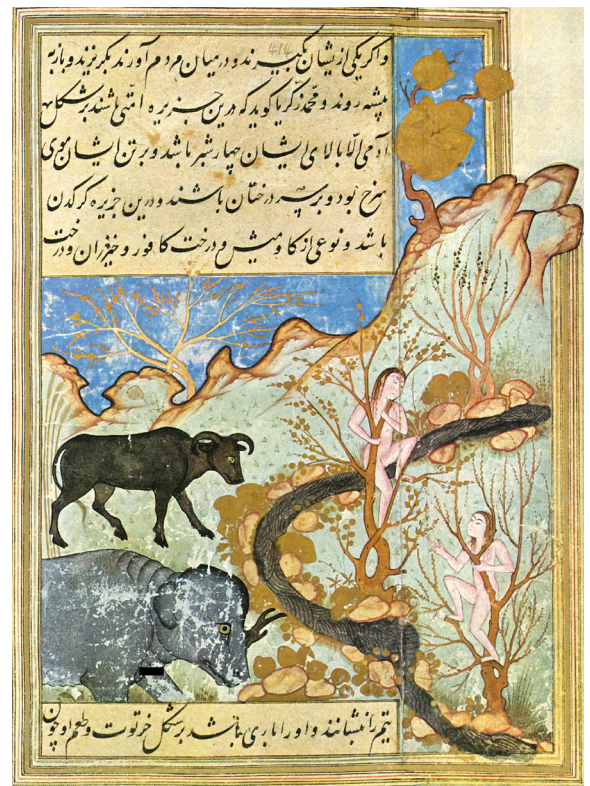 واکر یکی از یشان بگیرند و در میان مردم آورند بگریزند و باز به
بیشه روند و محمد زکریا کوید که درین جزیره امتی باشند بر شکل
آدمی الا بالای ایشان چهار شبر باشد و بر تن ایشان موی
سرخ بود و بر سر درختان باشند و درین جزیره کرکدن
باشد و نوعی از کاومیش و درخت کافور و خیزران و درخت
بقم را بنشانند و او را باری باشد بر شکل خرتوت و طعم او چون